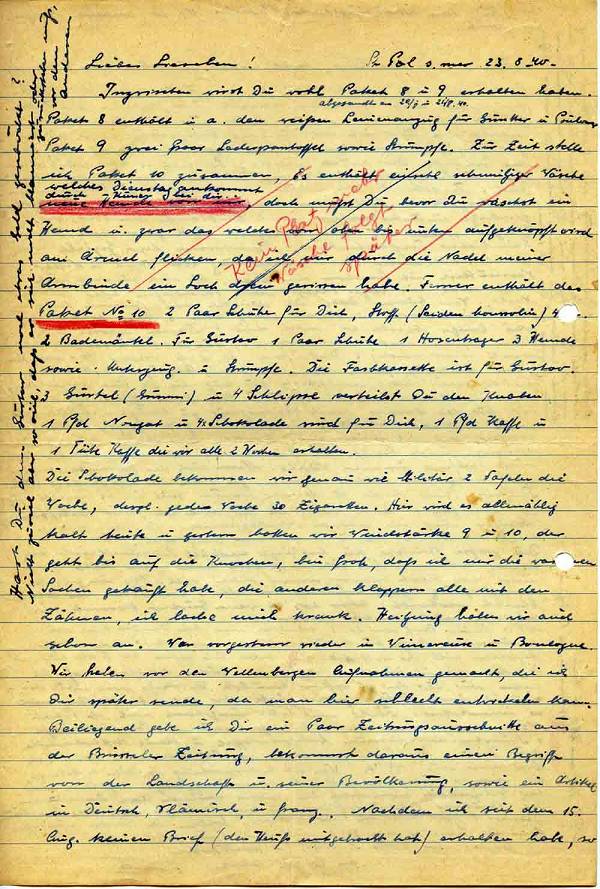 Liebes Lieseben! St Pol s. mer 23. 8 40.
Inzwischen wirst Du wohl Paket 8 u 9 erhalten haben.
abgesandt am
Paket 8 enthält u. a. den weißen Leinenanzug für Günter u
Paket 9 zwei Paar Lederpantoffel sowie Strümpfe. Zur Zeit stelle
ich Paket 10 zusammen, Es enthält schmutziger Wäsche
welches Dienstag ankommt
durch
doch mußt Du, bevor Du wäschst ein
Hemd u. zwar das welches von oben bis unten aufgeknöpft wird
am Ärmel flicken, da ich mir durch die Nadel meiner
Armbinde ein Loch gerissen habe. Ferner enthält das
Kein Platz mehr
Wäsche folgt
später
Paket No 10 2 Paar Schuhe für Dich, Stoff (Seiden
2 Bademäntel. Für Gustav 1 Paar Schuhe 1 Hosenträger 3 Hemde
sowie Unterzeug u Strümpfe. Die Farbkassette ist für Gustav.
3 Gürtel (Gummi) u 4 Schlipse verteilst Du den Knaben
1 Pfd Nougat u 4 Schokolade sind für Dich, 1 Pfd Kaffe u
1 Tüte Kaffe die wir alle 2 Wochen erhalten.
Die Schokolade bekommen wir genau wie Militär 2 Tafeln die
Woche, desgl. jede Woche 30 Zigaretten. Hier wird es allmählig
kalt heute u gestern hatten wir Windstärke 9 u 10, der
geht bis auf die Knochen, bin froh, daß ich mir die warmen
Sachen gekauft habe, die anderen klappern alle mit den
Zähnen, ich lache mich krank. Heizung haben wir auch
schon an. War vorgestern wieder in Vimereux u Boulogne.
Wir haben vor den Wellenbergen Aufnahmen gemacht, die ich
Dir später sende, da man hier schlecht entwickeln kann.
Beiliegend gebe ich Dir ein Paar Zeitungsausschnitte aus
der Brüsseler Zeitung, bekommst daraus einen Begriff
von der Landschaft u. seiner Bevölkerung, sowie ein Artikel
in Deutsch, Vlämisch, u franz. Nachdem ich seit dem 15.
Aug. keinen Brief (den mitgebracht hat) erhalten habe, so
Hast Du dem Gustav mal etwas Geld geschickt?
Nicht zuviel aber so viel, daß er sich nicht blamiert oder
zurückstehen muß,
vor den
Anderen